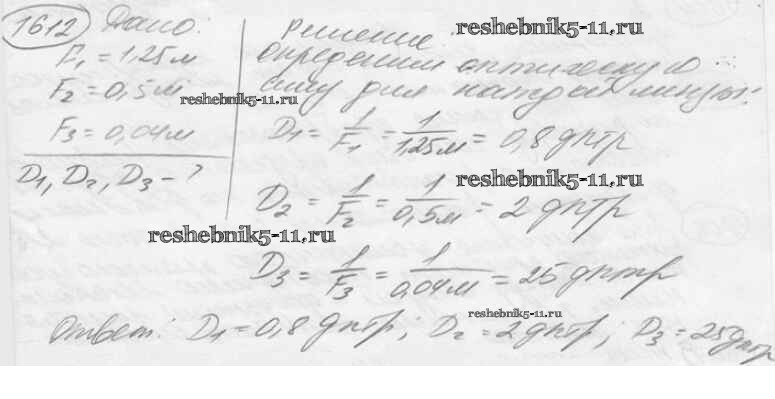 1612 Дано:
F₁ = 1,25 м
F₂ = 0,5 м
F₃ = 0,04 м
D₁, D₂, D₃ - ?
решение.
reshebnik5-11.ru
определим оптическую
силу для каждой линзы:
reshebnik5-11.ru
D₁ = 1/F₁ = 1/1,25м = 0,8 дптр
reshebnik5-11.ru
D₂ = 1/F₂ = 1/0,5м = 2 дптр
reshebnik5-11.ru
D₃ = 1/F₃ = 1/0,04м = 25 дптр
reshebnik5-11.ru
Ответ: D₁ = 0,8 дптр; D₂ = 2 дптр; D₃ = 25 дптр